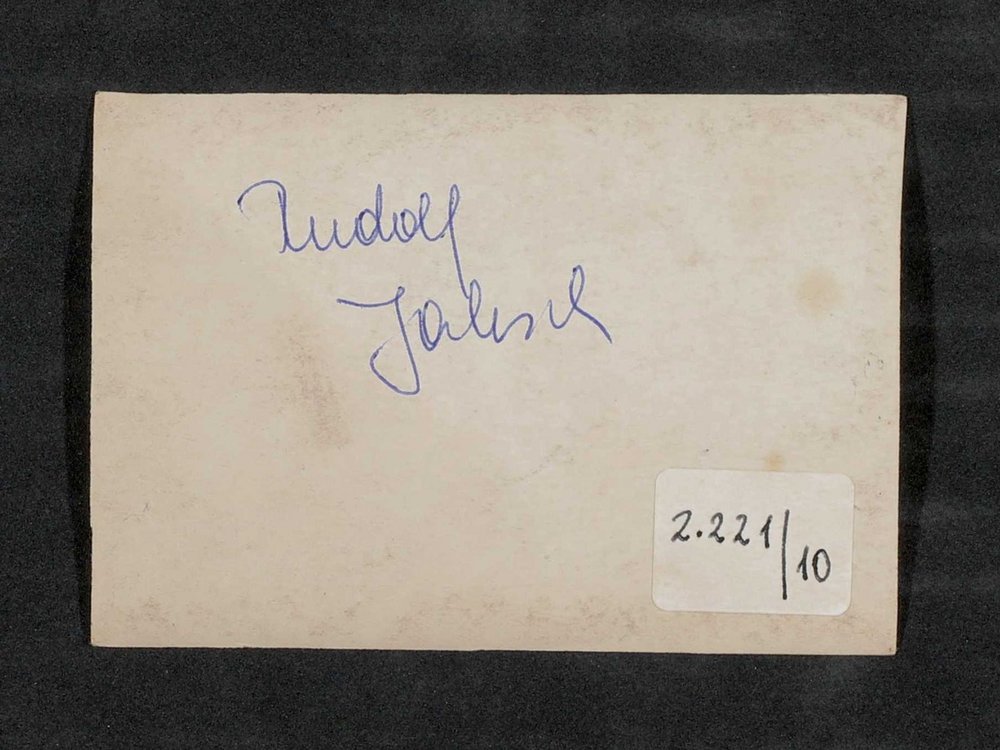 Rudolf
Jaksch
2.221/10